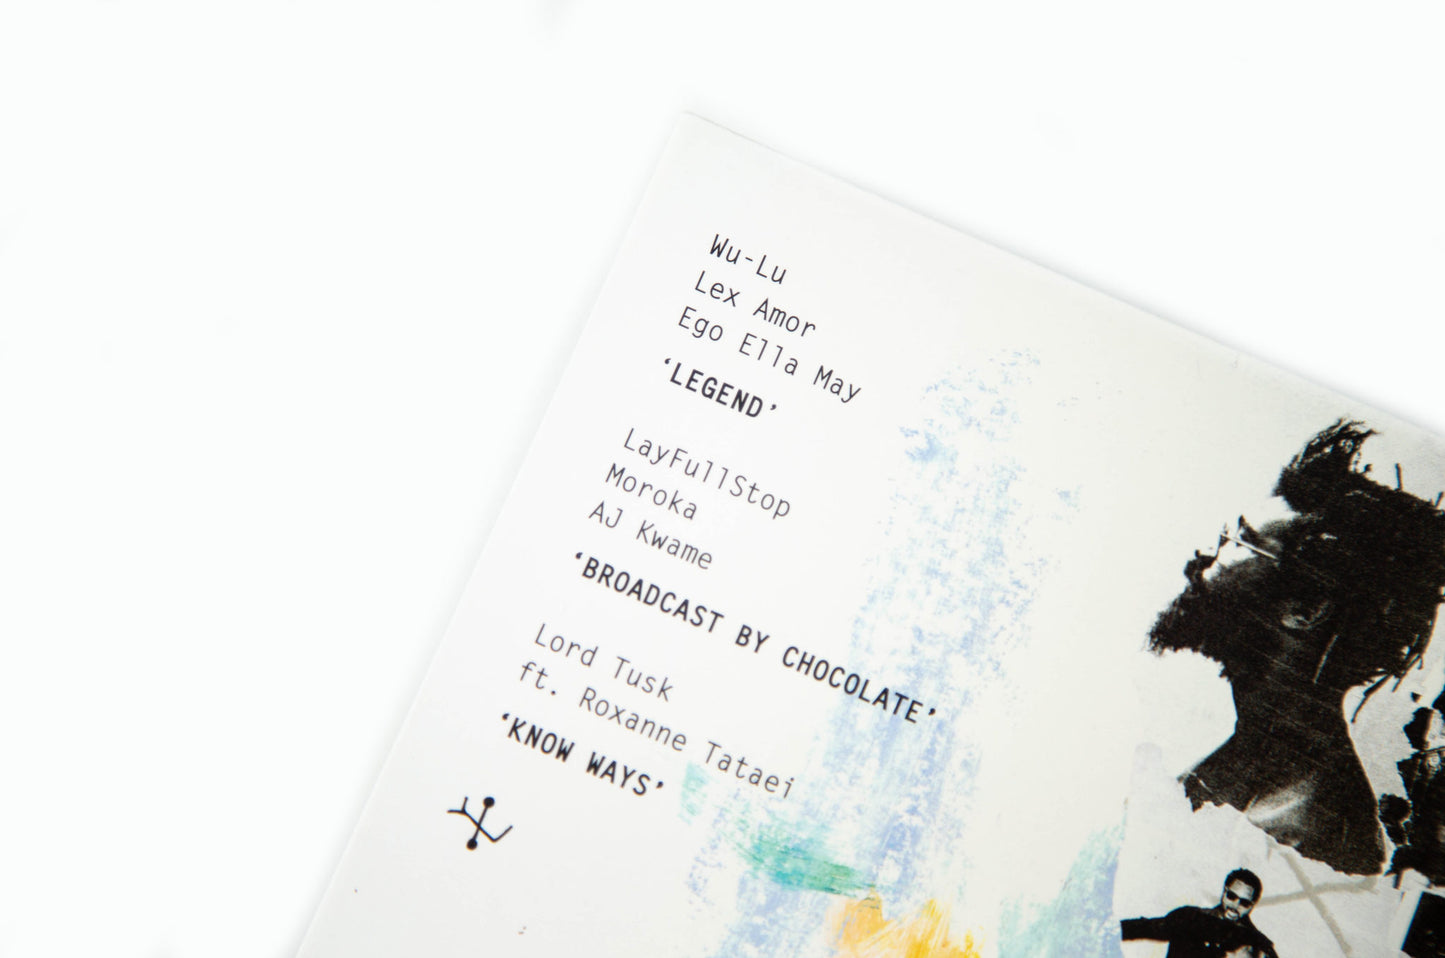 Wu-Lu
Lex Amor
Ego Ella May
‘LEGEND’
LayFullStop
Moroka
AJ Kwame
‘BROADCAST BY CHOCOLATE’
Lord Tusk
ft. Roxanne Tataei
‘KNOW WAYS’